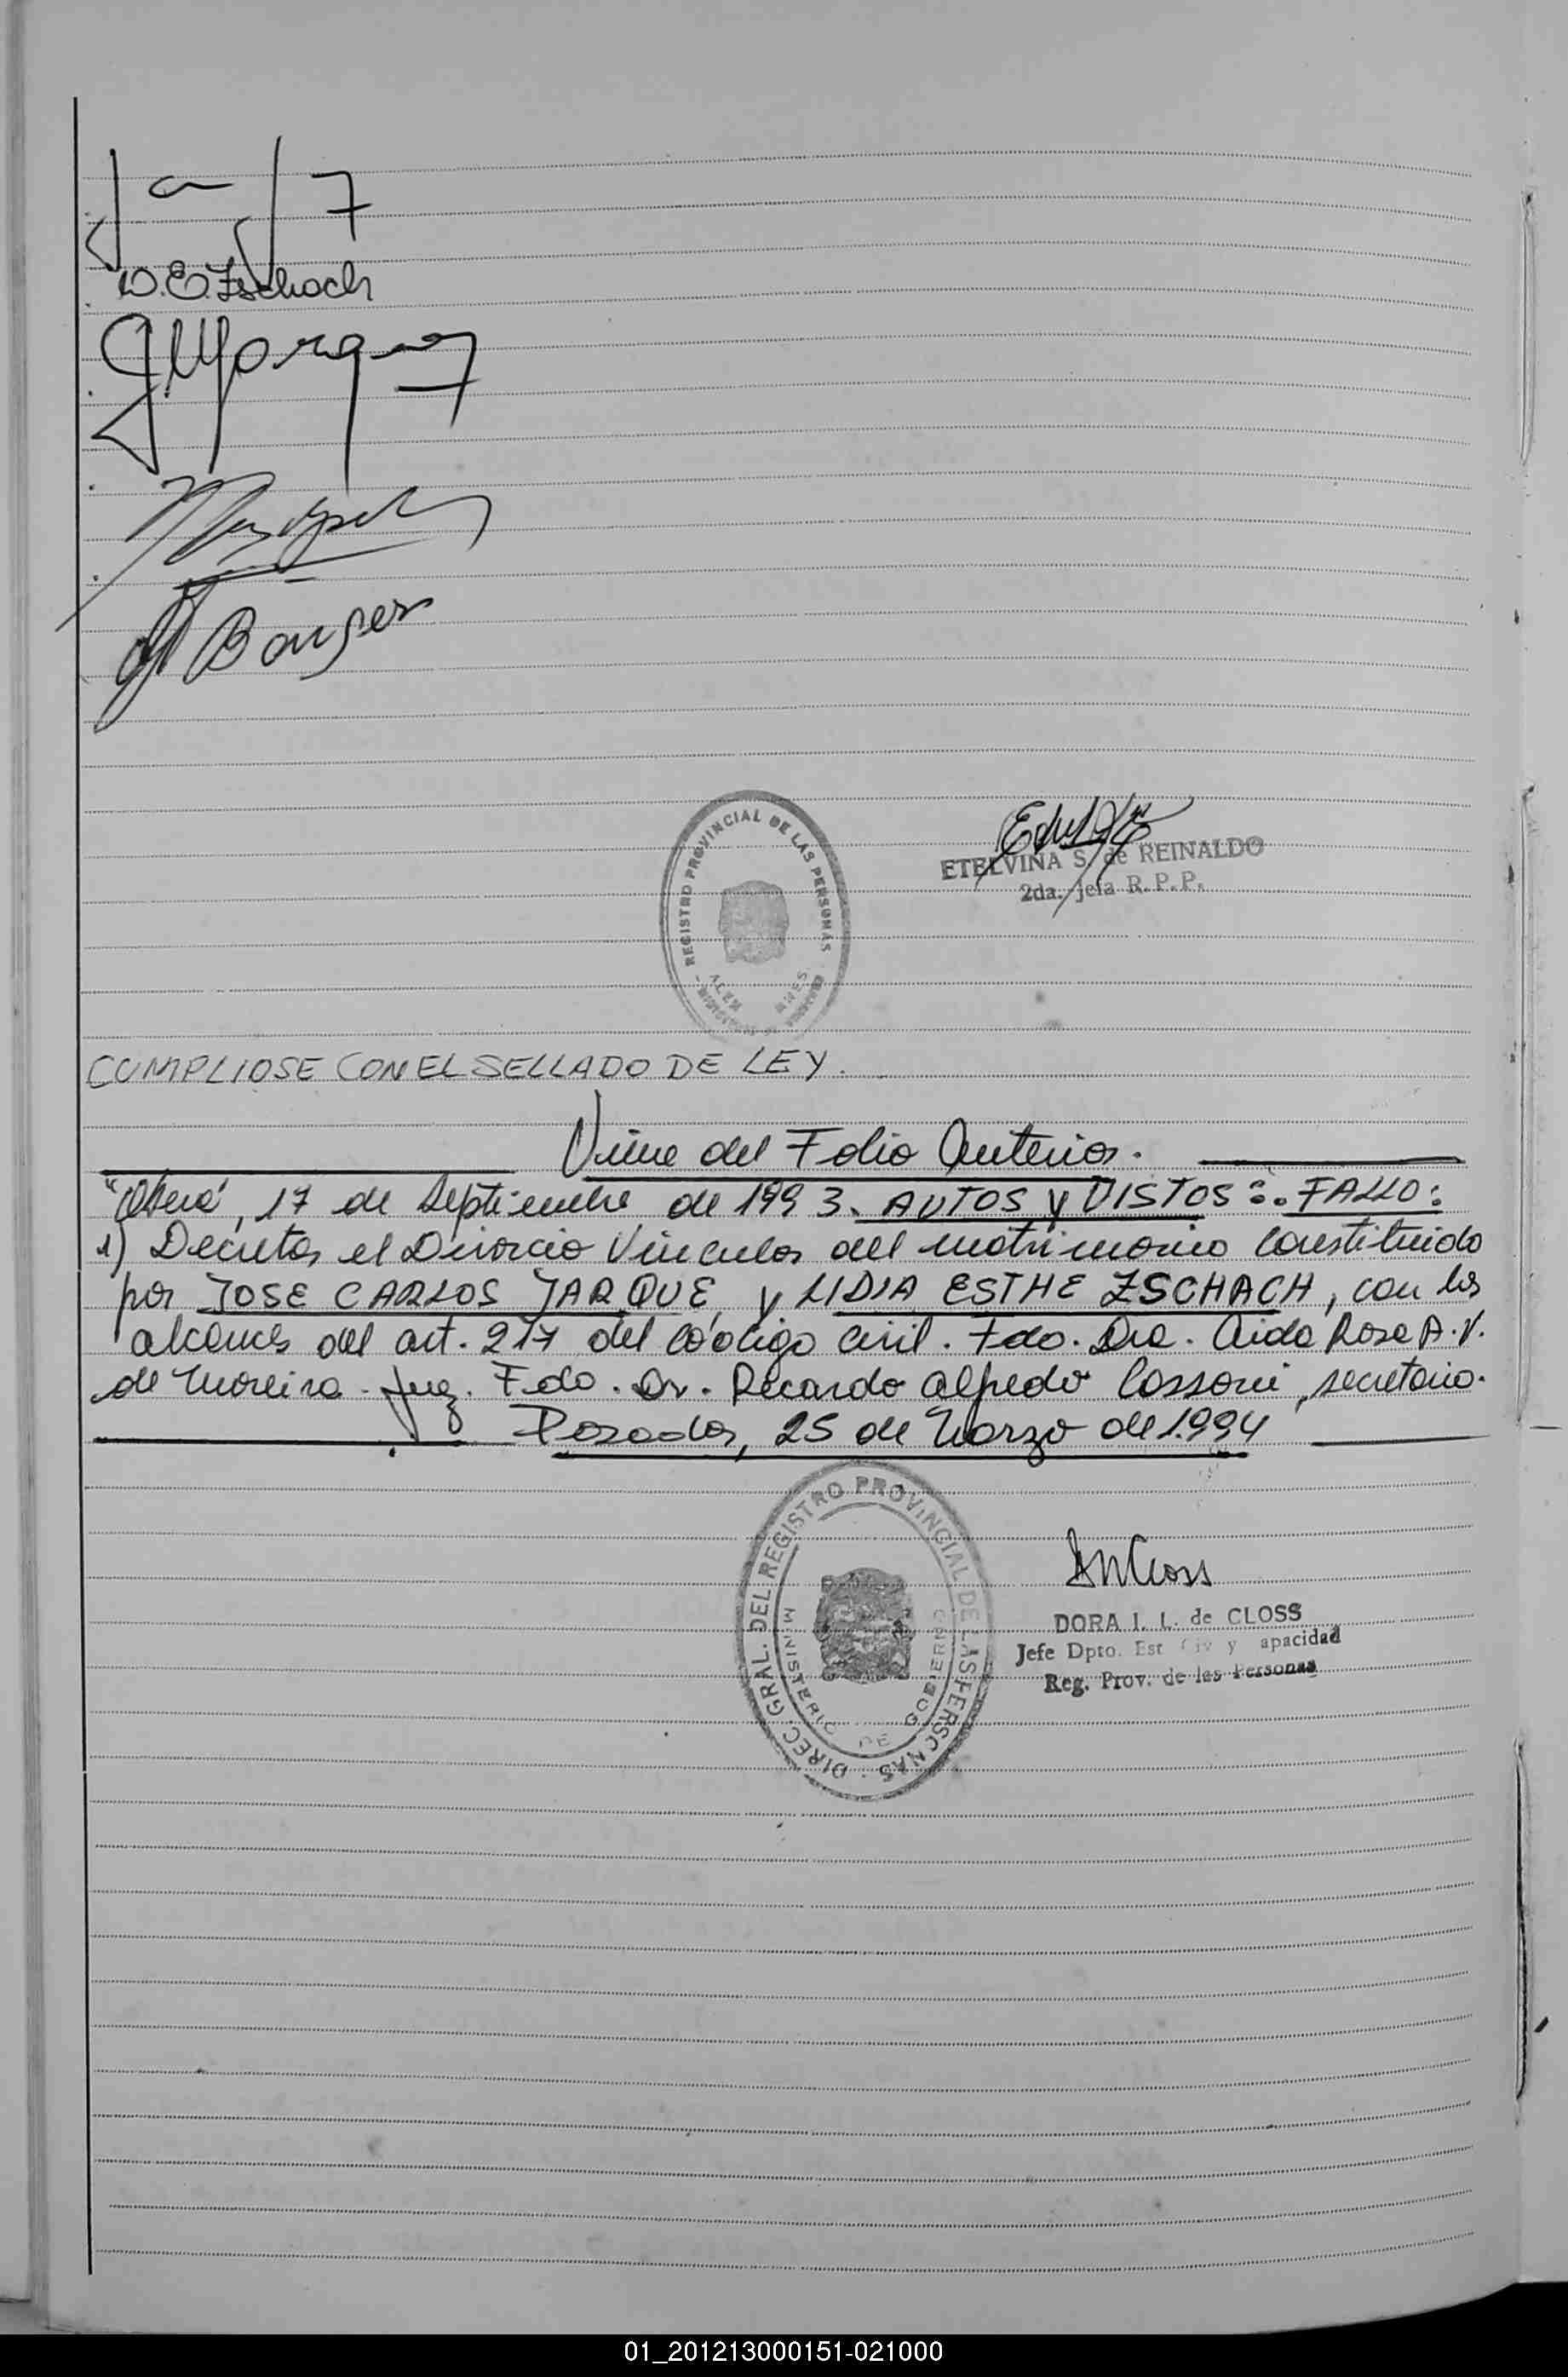 L.E. Zschach
J. Marquez
Bauger
REGISTRO PROVINCIAL DE LAS PERSONAS
ALEM MNES
ETELVINA S. de REINALDO
2da. jefa R.P.P.
CUMPLIOSE CON EL SELLADO DE LEY.
Viene del Folio Anterior.
"Oberá, 17 de Septiembre de 1993. AUTOS Y VISTOS:. FALLO:
1) Decretar el Divorcio Vincular del matrimonio constituido
por JOSE CARLOS JARQUE, y LIDIA ESTHE ZSCHACH, con los
alcances del art. 217 del Código Civil. Fdo. Dra. Aida Rosa A.V.
de Moreira. Juez. Fdo. Dr. Ricardo Alfredo Cassoni, secretario.
Posadas, 25 de Marzo de 1.994
DIREC. GRAL. DEL REGISTRO PROVINCIAL DE LAS PERSONAS
MINISTERIO DE GOBIERNO
DORA I. L. de CLOSS
Jefe Dpto. Est Civ y apacidad
Reg. Prov. de las Personas
01_201213000151-021000